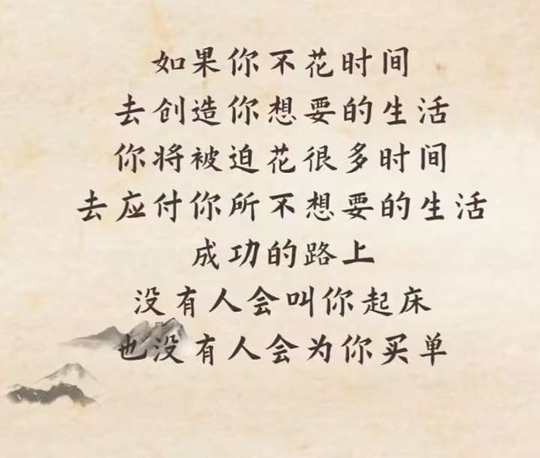 如果你不花时间
去创造你想要的生活
你将被迫花很多时间
去应付你所不想要的生活
成功的路上
没有人会叫你起床
也没有人会为你买单